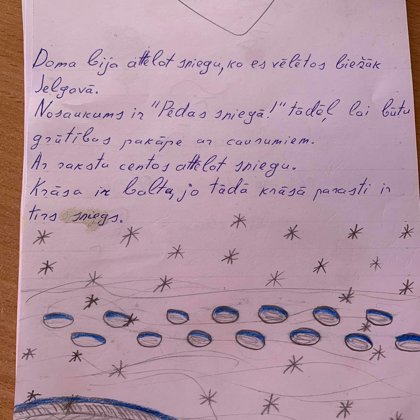 Doma bija attēlot sniegu, ko es vēlētos biežāk
Jelgavā.
Nosaukums ir "Pēdas sniegā!" tādēļ lai būtu
grūtības pakāpe ar caurumiem.
Ar rakstu centos attēlot sniegu.
Krāsa ir balta, jo tādā krāsā parasti ir
tīrs sniegs.